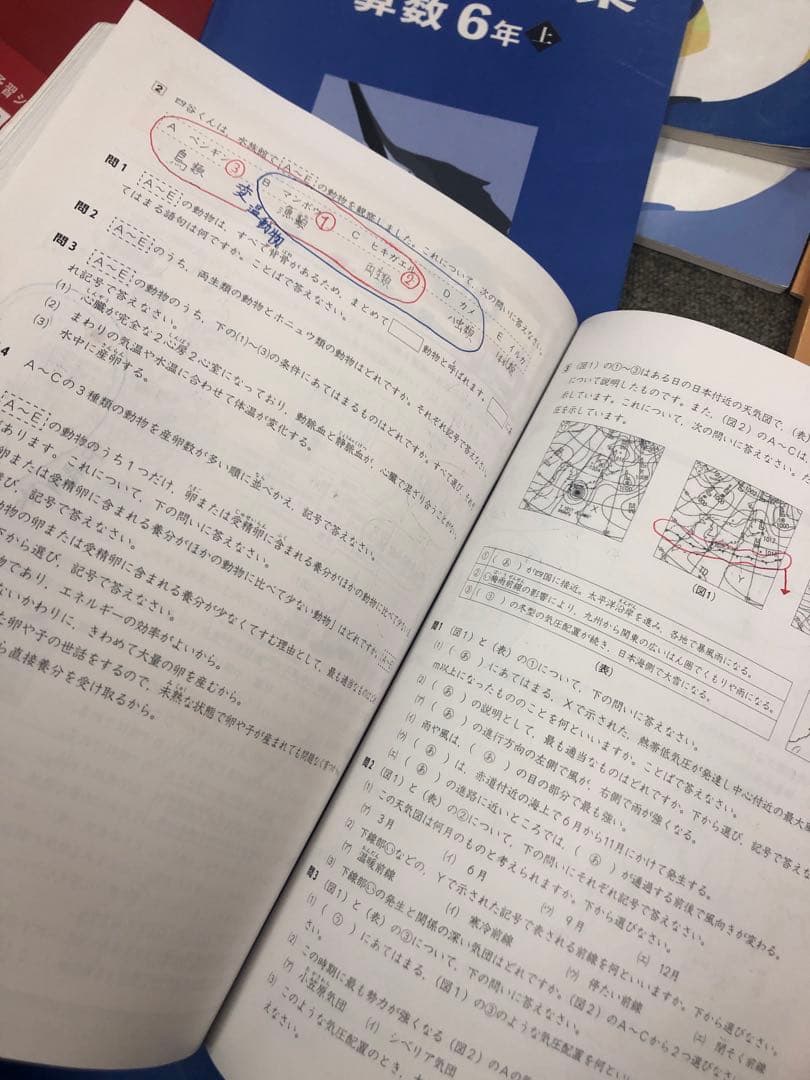 算数6年 上
2
四谷くんは、水族館で A~E の動物を観察しました。これについて、次の問いに答えなさい。
A ペンギン B マンボウ C ヒキガエル D カメ E イルカ
鳥類 ③ 魚類 ① 両生類 ② ハ虫類
変温動物
問1 A~E の動物は、すべて背骨があるため、まとめて 動物と呼ばれます。 に
てはまる語句は何ですか。ことばで答えなさい。
問2 A~E のうち、両生類の動物とホニュウ類の動物はどれですか。それぞれ記号で答えなさい。
問3 A~E の動物のうち、下の(1)~(3)の条件にあてはまるものはどれですか。すべて選び、それぞ
れ記号で答えなさい。
(1) 心臓が完全な2心房2心室になっており、動脈血と静脈血が、心臓で混ざり合うことがない。
(2) まわりの気温や水温に合わせて体温が変化する。
(3) 水中に産卵する。
4 A~Cの3種類の動物を産卵数が多い順に並べかえ、記号で答えなさい。
A~E の動物のうち1つだけ、卵または受精卵に含まれる養分がほかの動物に比べて少ない
あります。これについて、下の問いに答えなさい。
卵または受精卵に含まれる養分がほかの動物に比べて少ない動物」はどれですか。
び、記号で答えなさい。
動物の卵または受精卵に含まれる養分が少なくてすむ理由として、最も適当なものは
下から選び、記号で答えなさい。
物であり、エネルギーの効率がよいから。
ないかわりに、きわめて大量の卵を産むから。
た卵や子の世話をするので、未熟な状態で卵や子が産まれても問題なく育つ
ら直接養分を受け取るから。
(図1)の①~③はある日の日本付近の天気図で、(表)
について説明したものです。また、(図2)のA~Cは、
示しています。これについて、次の問いに答えなさい。た
圧を示しています。
X
Y
(図1)
① (あ)が四国に接近。太平洋沿岸を進み、各地で暴風雨になる。
② ○梅雨前線の影響により、九州から関東の広いはん囲でくもりや雨になる。
③ (③)の冬型の気圧配置が続き、日本海側で大雪になる。
(表)
問1 (図1)と(表)の①について、下の問いに答えなさい。
(1) (あ)にあてはまる、Xで示された、熱帯低気圧が発達し中心付近の最大風
m以上になったもののことを何といいますか。ことばで答えなさい。
(2) (あ)の説明として、最も適当なものはどれですか。下から選び、記号で答えなさ
(ア) (あ)の進行方向の左側で風が、右側で雨が強くなる。
(イ) 雨や風は、(あ)の目の部分で最も強い。
(ウ) (あ)は、赤道付近の海上で6月から11月にかけて発生する。
(エ) (あ)の進路に近いところでは、(あ)が通過する前後で風向きが変わる。
問2 (図1)と(表)の②について、下の問いにそれぞれ記号で答えなさい。
(1) この天気図は何月のものと考えられますか。下から選びなさい。
(ア) 3月 (イ) 6月 (ウ) 9月 (エ) 12月
(2) 下線部○などの、Yで示された記号で表される前線を何といいますか。下から選びなさい。
(ア) 温暖前線 (イ) 寒冷前線 (ウ) 停たい前線 (エ) 閉そく前線
(3) 下線部○の発生と関係の深い気団はどれですか。(図2)のA~Cから2つ選びなさい。
問3 (図1)と(表)の③について、下の問いに答えなさい。
(1) (③)にあてはまる、(図1)の③のような気圧配置を何といい
さい。
(2) この時期に最も勢力が強くなる(図2)のAの
(ア) 小笠原気団 (イ) シベリア気団
(3) このような気圧配置のとき、
えなさい。